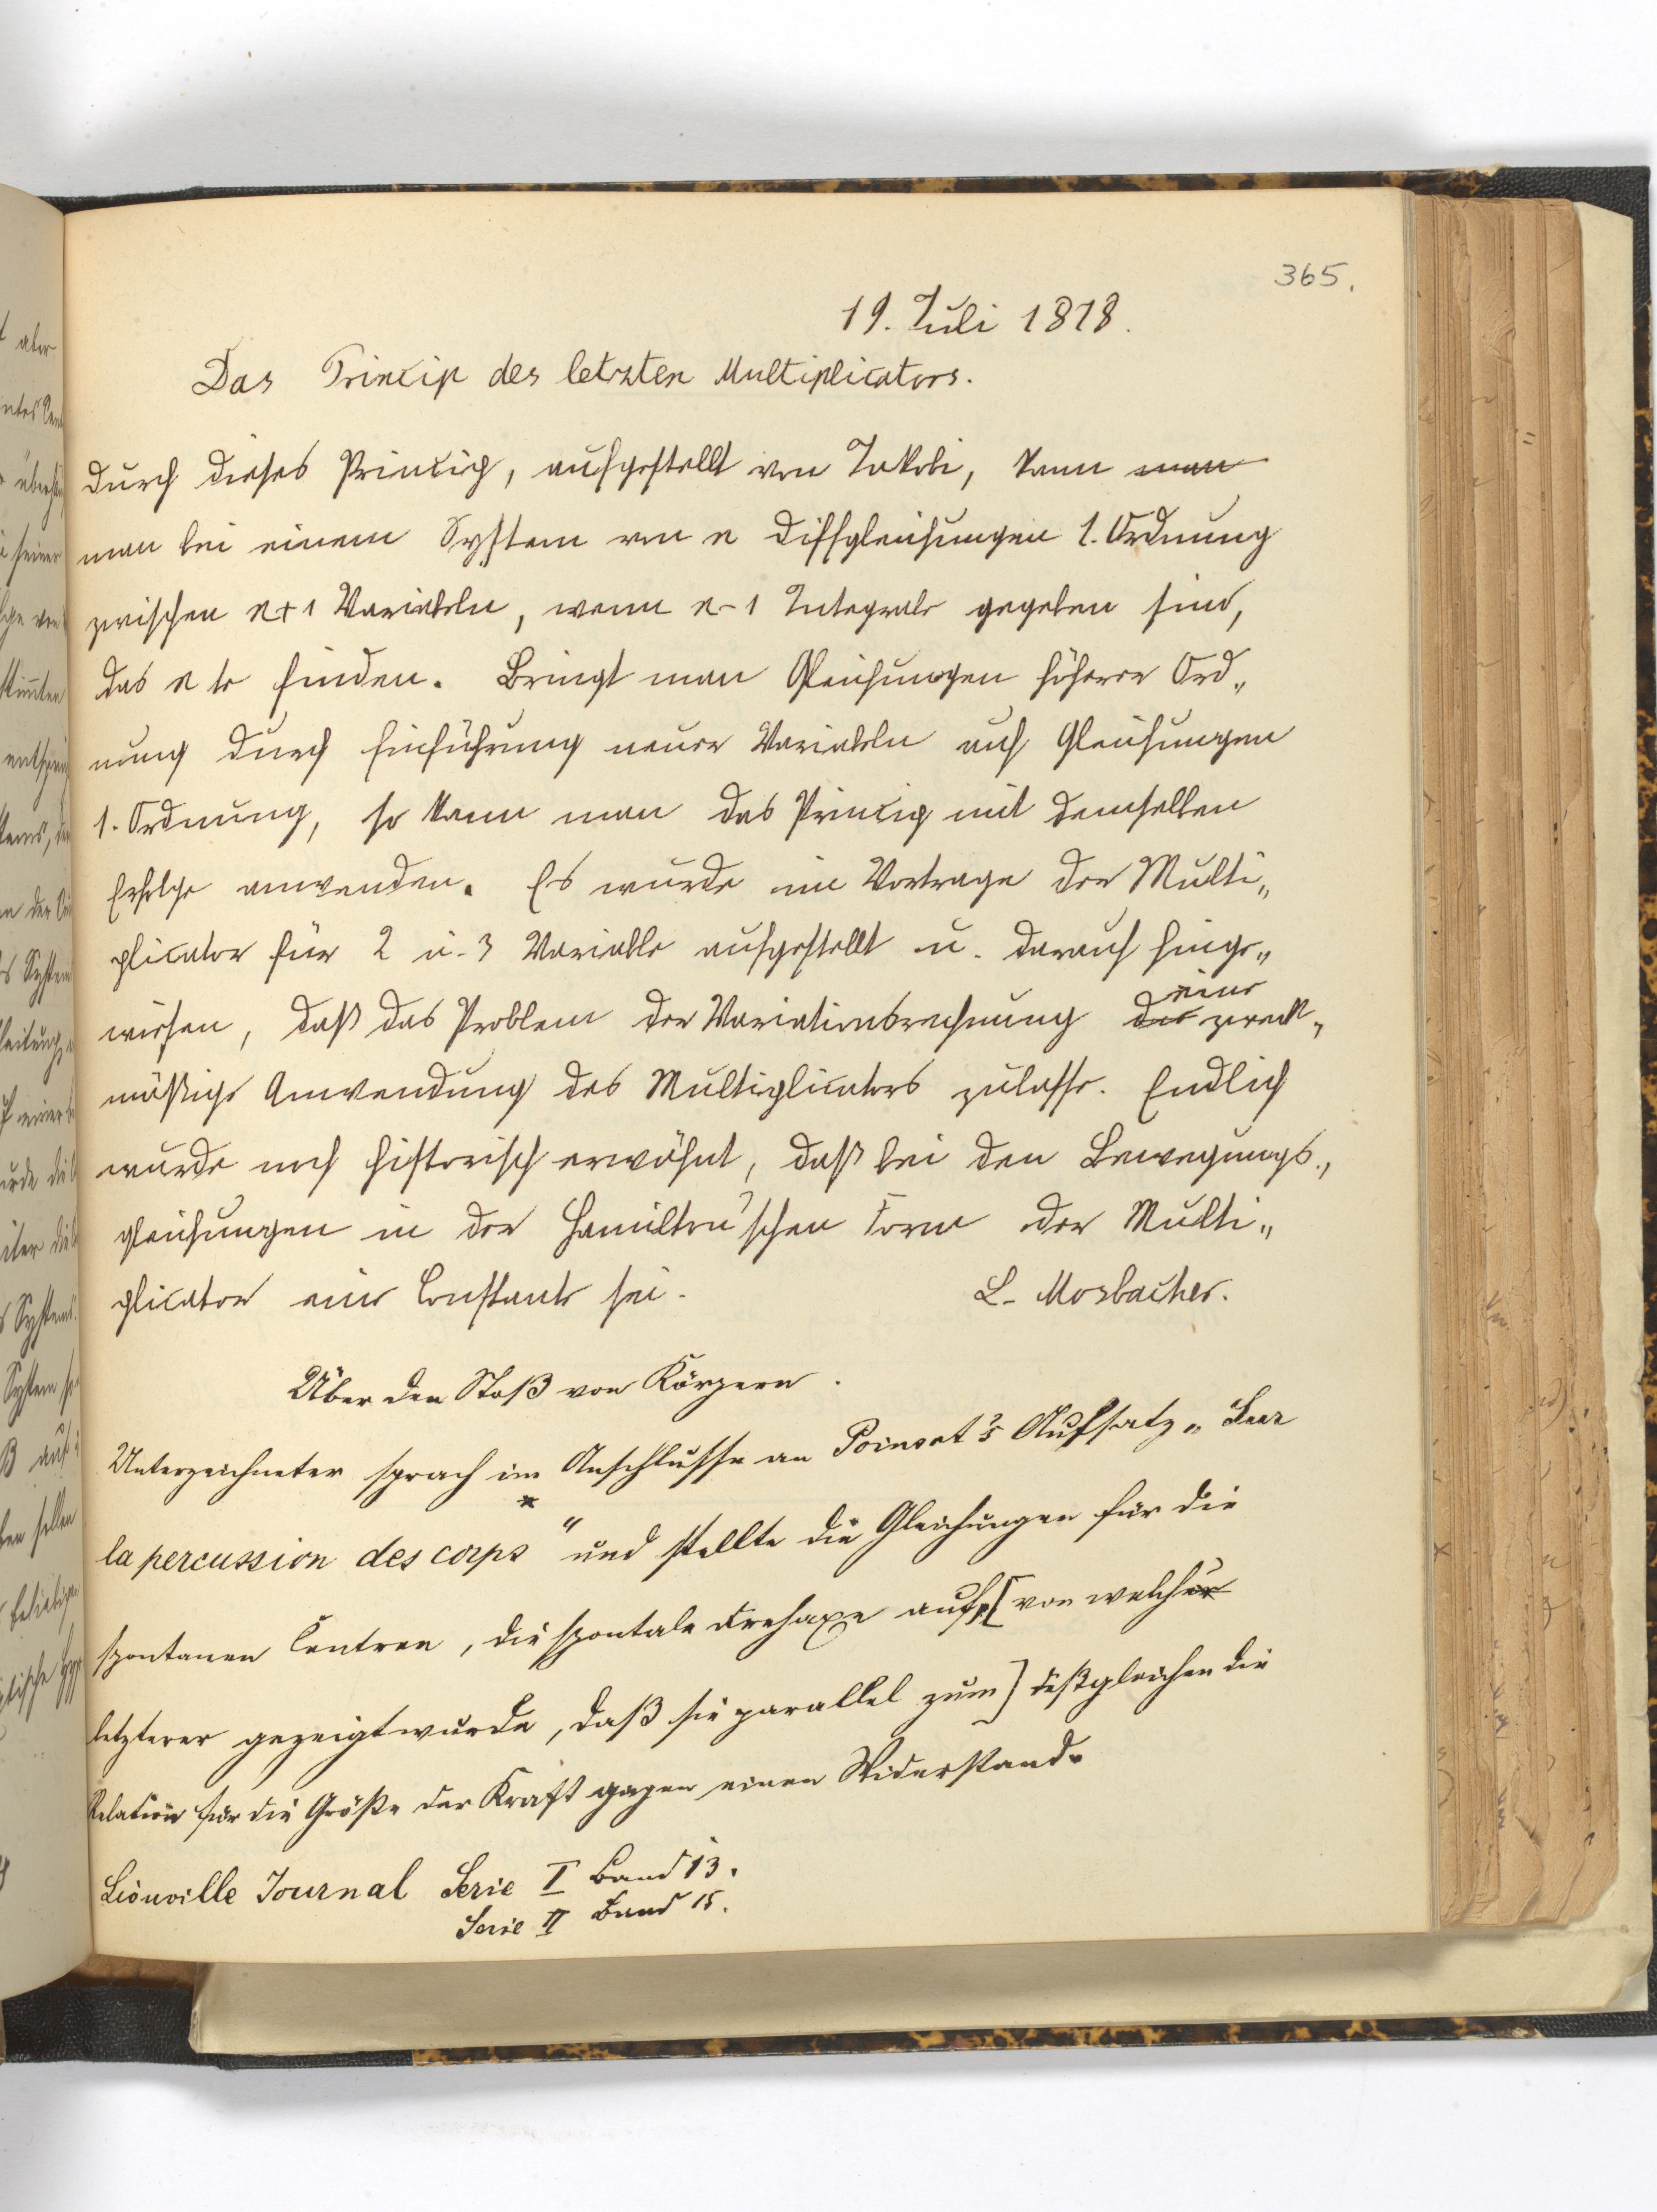 365.
19. Juli 1878.
Das Princip des letzten Multiplicators.
Durch dieses Princip, aufgestellt von Jakobi, kann man
man bei einem System von n Diffgleichungen 1. Ordnung
zwischen n+1 Variabeln, wenn n-1 Integrale gegeben sind,
das n te finden. Bringt man Gleichungen höherer Ord„
nung durch Einführung neuer Variabeln auf Gleichungen
1. Ordnung, so kann man das Princip mit demselben
Erfolge anwenden. Es wurde im Vortrage der Multi„
plicator für 2 u. 3 Variable aufgestellt u. darauf hinge„
wiesen, daß das Problem der Variationsrechnung eine zweck„
mäßige Anwendung des Multiplicators zulasse. Endlich
wurde noch historisch erwähnt, daß bei den Bewegungs„
gleichungen in der Hamilton'schen Form der Multi„
plicator eine Constante sei. L. Mosbacher.
Über den Stoß von Körpern.
Unterzeichneter sprach im Anschlusse an Poinsot's Aufsatz „Sur
la percussion des corps* " und stellte die Gleichungen für die
spontanen Centren, die spontale Drehaxe auf, [von welcher
letzterer gezeigt wurde, daß sie parallel zum] deßgleichen die
Relation für die Größe der Kraft gegen einen Widerstand.
Liouville Journal Serie I Band 13.
Serie II Band 15.